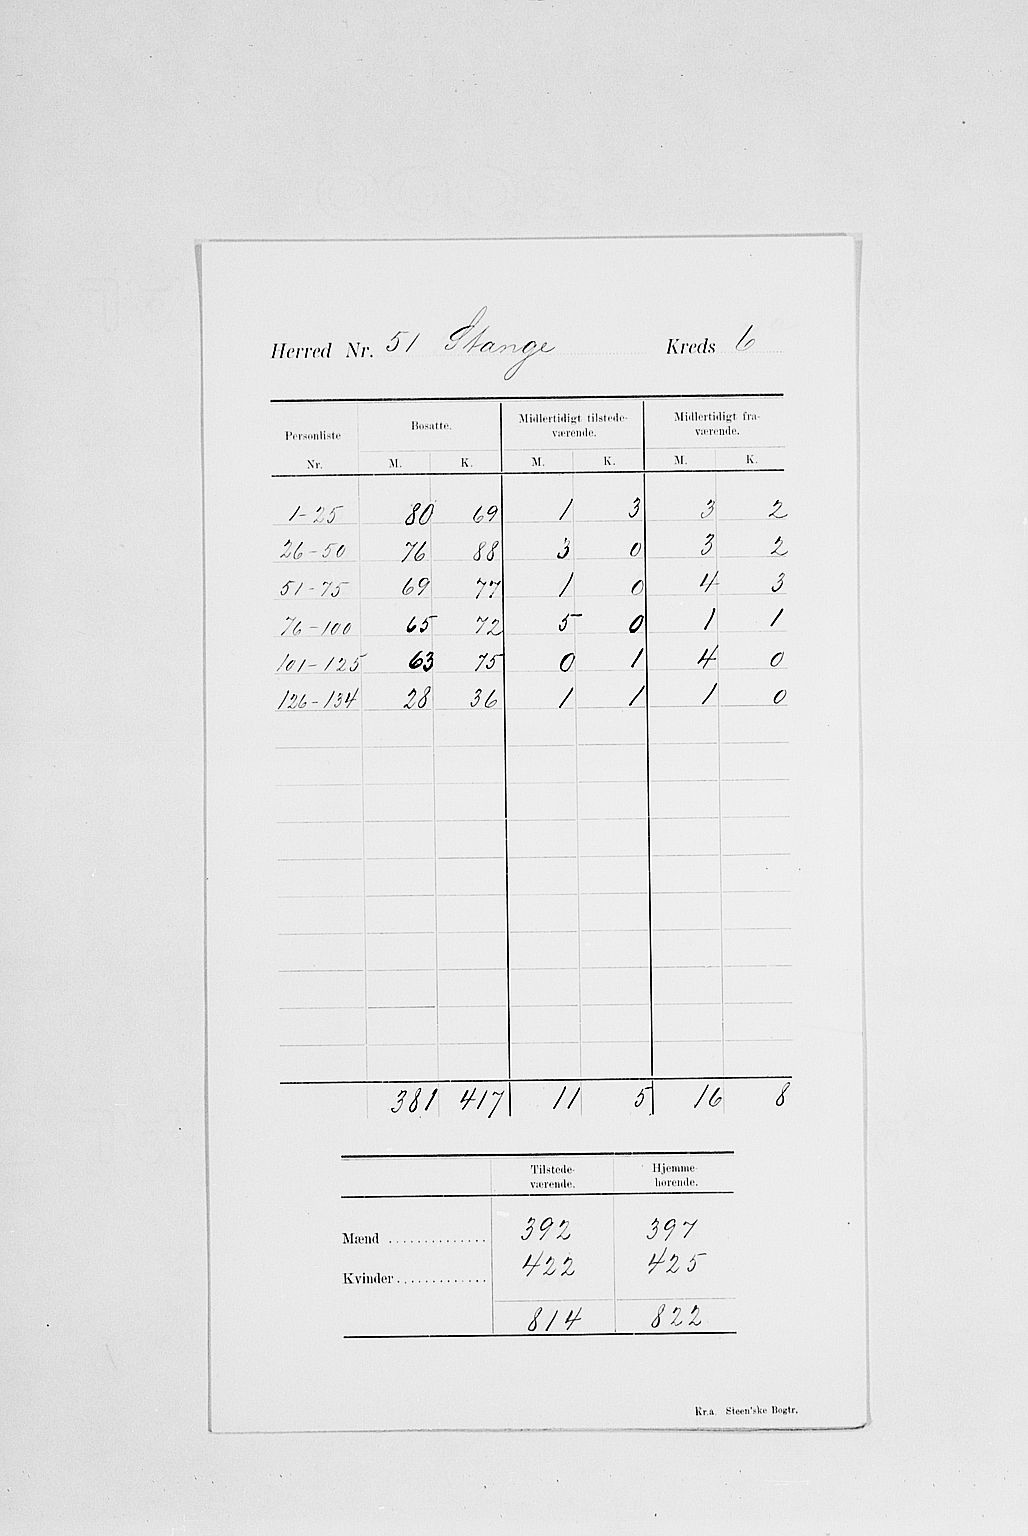 Herred Nr. 51 Stange Kreds 6
Personliste Nr. Bosatte. Midlertidigt tilstede-værende. Midlertidigt fra-værende.
M. K. M. K. M. K.
1-25 80 69 1 3 3 2
26-50 76 88 3 0 3 2
51-75 69 77 1 0 4 3
76-100 65 72 5 0 1 1
101-125 63 75 0 1 4 0
126-134 28 36 1 1 1 0
381 417 11 5 16 8
Tilstede-værende. Hjemme-hørende.
Mænd .............. 392 397
Kvinder ............. 422 425
814 822
Kr.a. Steen'ske Bogtr.